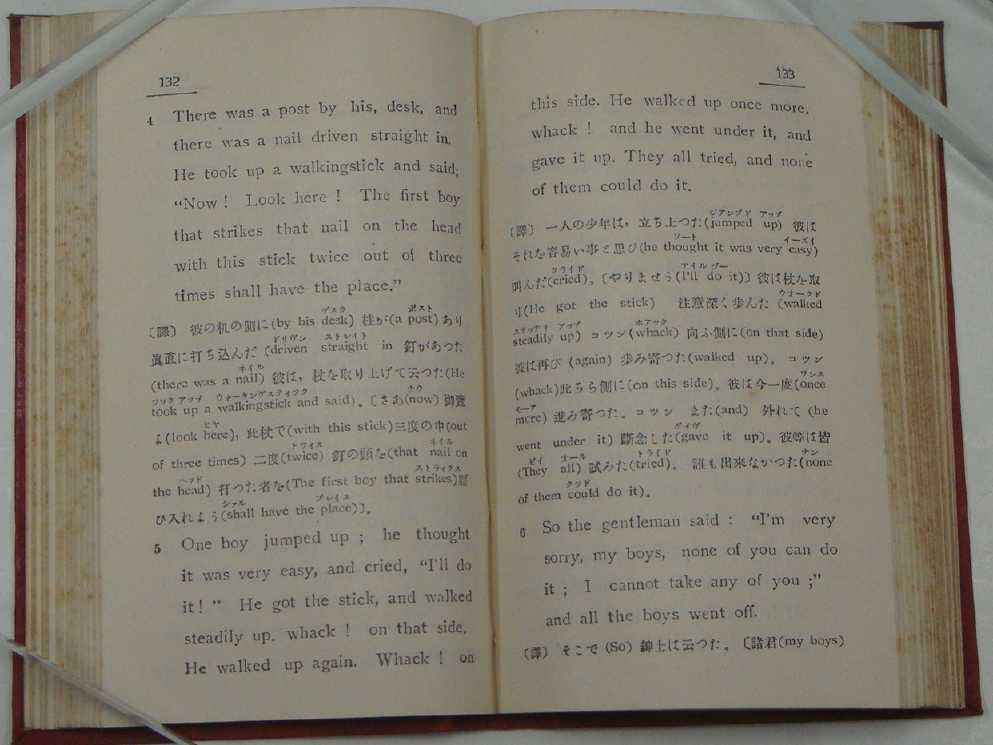 132
4 There was a post by his, desk, and
there was a nail driven straight in.
He took up a walkingstick and said;
“Now ! Look here ! The first boy
that strikes that nail on the head
with this stick twice out of three
times shall have the place.”
デスク ポスト
〔譯〕 彼の机の側に(by his desk) 柱が(a post)あり
ドリヴン ストレイト
眞直に打ち込んだ (driven straight in 釘があつた
ネイル
(there was a nail) 彼は，杖を取り上げて云つた(He
ツック アップ ウォーキングスティック ナウ
took up a walkingstick and said)。〔さあ(now) 御覽
ヒヤ
よ(look here)，此杖で(with this stick)三度の中(out
トワイス ネイル
of three times) 二度(twice) 釘の頭を(that nail on
ヘッド ストライクス
the head) 打つた者を(The first boy that strikes)
シァル プレイス
ひ入れよう(shall have the place)〕。
5 One boy jumped up ; he thought
it was very easy, and cried, “I'll do
it ! ” He got the stick, and walked
steadily up. whack ! on that side.
He walked up again. Whack ! on
133
this side. He walked up once more.
whack ! and he went under it, and
gave it up. They all tried, and none
of them could do it.
ジアンプド アップ
〔譯〕 一人の少年は，立ち上つた(jumped up) 彼は
ソート イーズイ
それを容易い事と思ひ(he thought it was very easy)
クライド アイル ヅー
叫んだ(cried)。〔やりませう(I'll do it)〕彼は杖を取
ウオークド
り(He got the stick) 注意深く歩んだ (walked
ステッデイリ アップ ホアック
steadily up) コツン(whack) 向ふ側に(on that side)
彼は再び (again) 歩み寄つた(walked up)。 コツン
ワンス
(whack)此ちら側に(on this side)。彼は今一度(once
モーア
more) 進み寄つた。コツン また(and) 外れて (he
ガイヴ
went under it) 斷念した(gave it up)。彼等は皆
ゼイ オール トライド ナン
(They all) 試みた(tried)。 誰も出來なかつた(none
クッド
of them could do it)。
6 So the gentleman said : “I'm very
sorry, my boys, none of you can do
it ; I cannot take any of you ;”
and all the boys went off.
〔譯〕 そこで (So) 紳士は云つた。〔諸君(my boys)